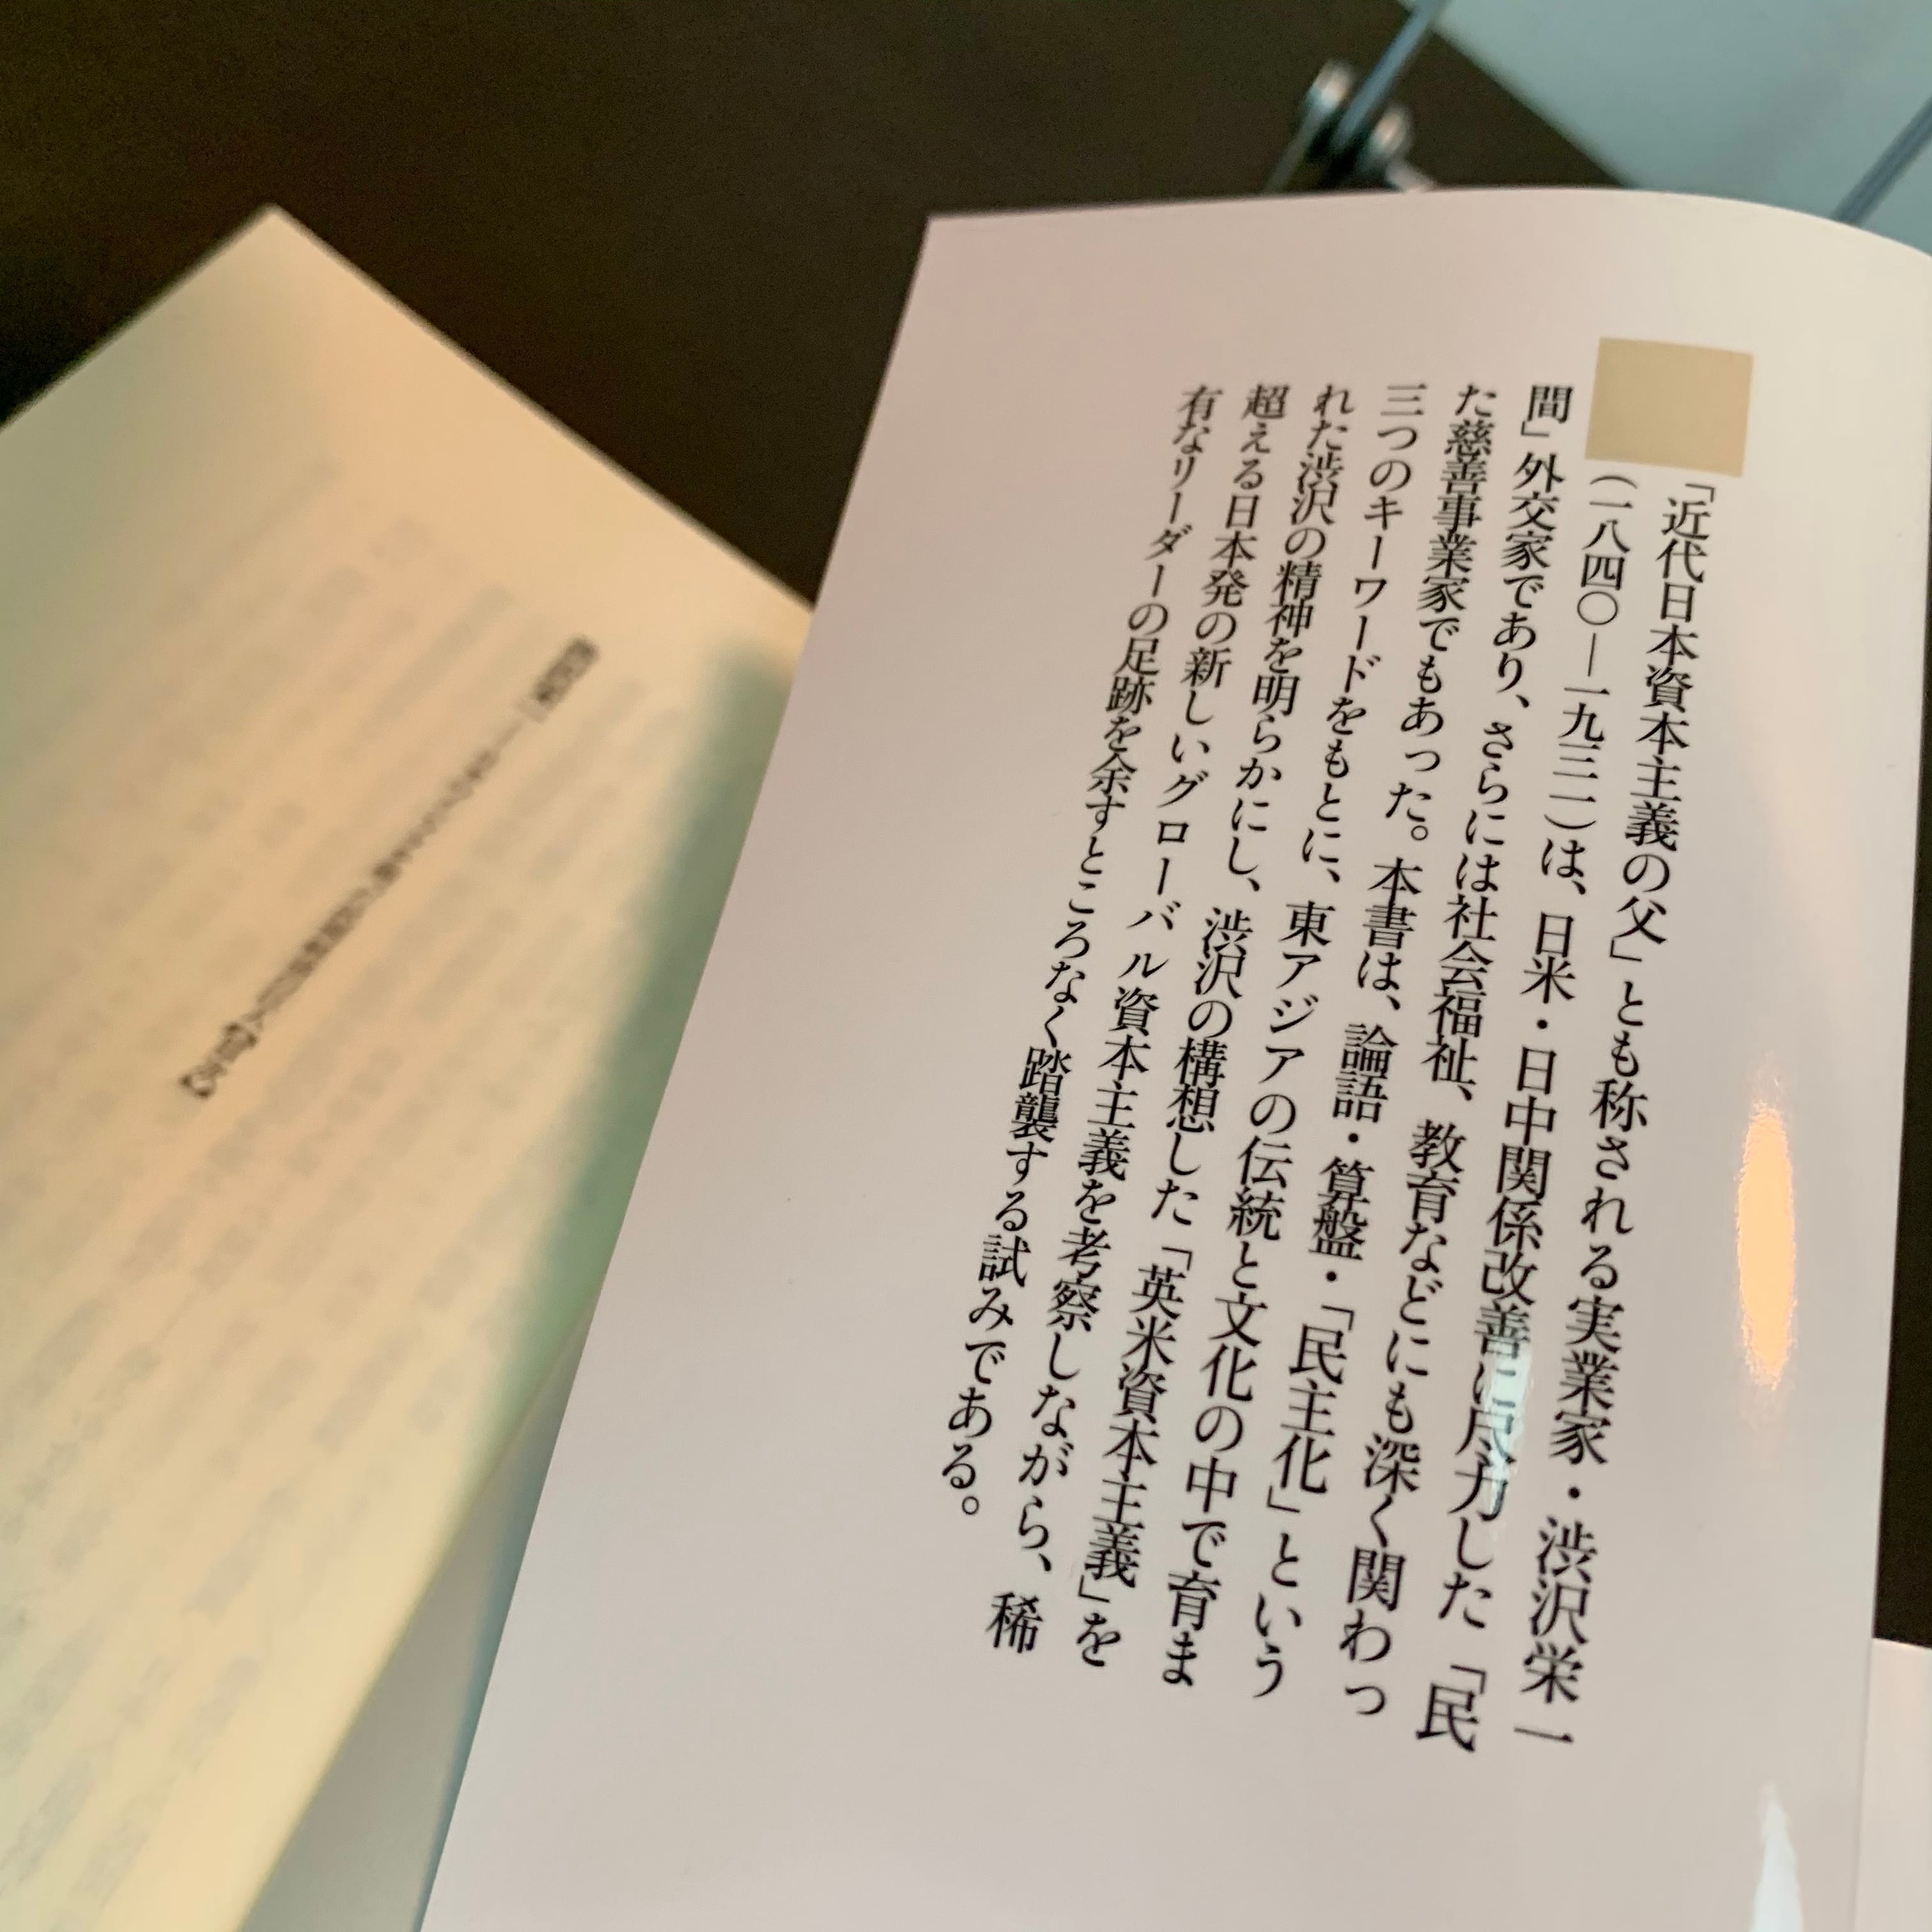 「近代日本資本主義の父」とも称される実業家・渋沢栄一
(一八四〇―一九三一)は、日米・日中関係改善に尽力した「民
間」外交家であり、さらには社会福祉、教育などにも深く関わっ
た慈善事業家でもあった。本書は、論語・算盤・「民主化」という
三つのキーワードをもとに、東アジアの伝統と文化の中で育ま
れた渋沢の精神を明らかにし、渋沢の構想した「英米資本主義」を
超える日本発の新しいグローバル資本主義を考察しながら、稀
有なリーダーの足跡を余すところなく踏襲する試みである。